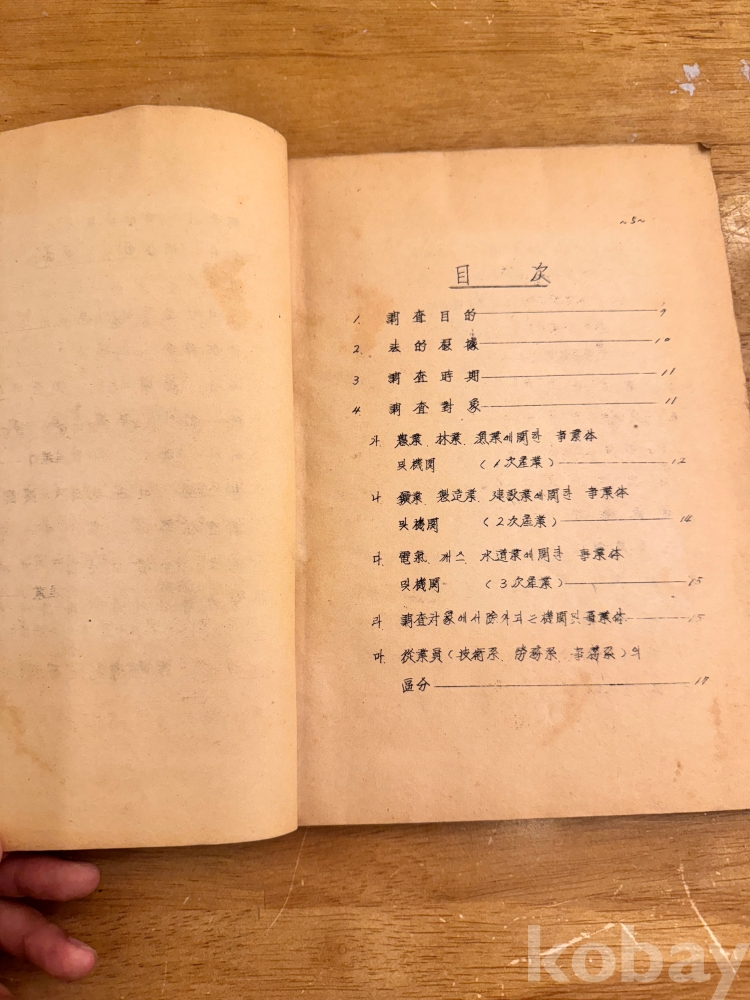 ~5~
目 次
1. 調査目的 9
2. 法的根據 10
3 調査時期 11
4. 調査對象 11
가. 農業, 林業, 漁業에関한 事業体
및機関 (1次産業) 12
나. 鑛業, 製造業, 建設業에関한 事業体
및機関 (2次産業) 14
다. 電氣, 까스, 水道業에関한 事業体
및機関 (3次産業) 15
라. 調査対象에서 除外되는 機関및事業体 15
마. 從業員(技術系, 勞務系, 事務系)의
區分 17
kobay